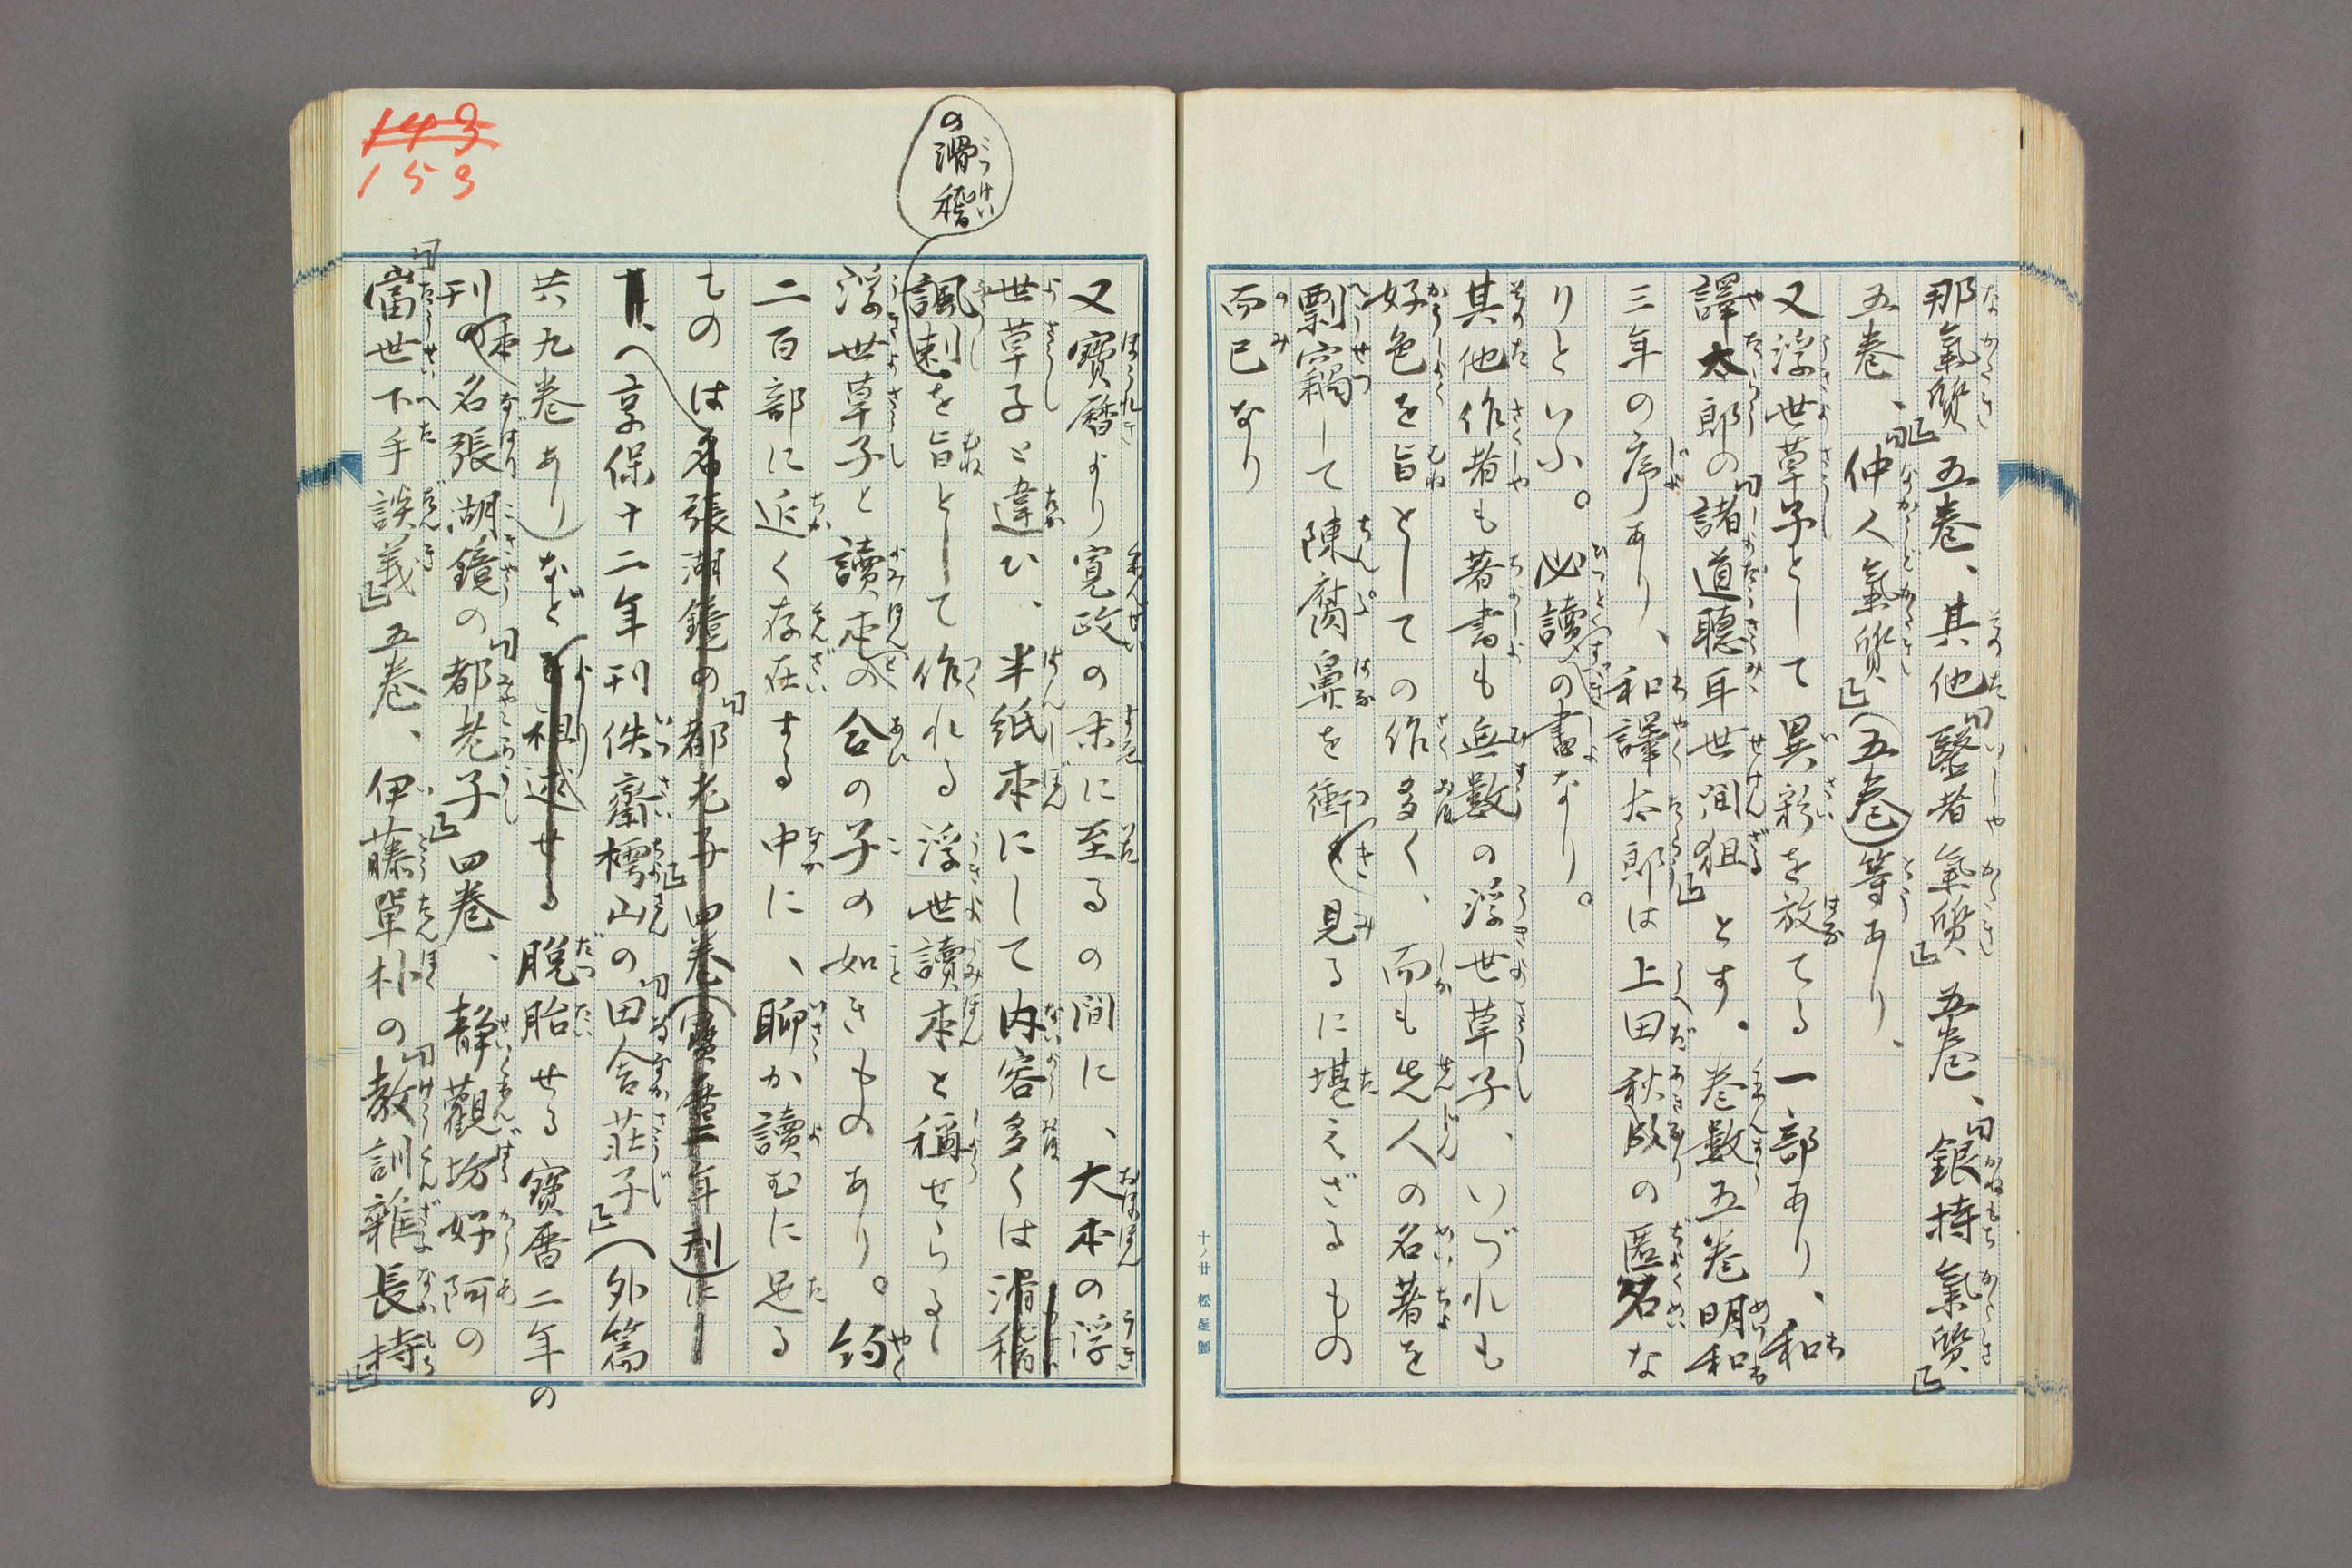 那氣質五卷、其他『醫者氣質』五卷、『銀持氣質』
五卷、『仲人氣質』(五卷)等あり、
又浮世草子として異彩を放てる一部あり、和
譯太郎の『諸道聽耳世間狙』とす。卷數五卷明和
三年の序あり、和譯太郎は上田秋成の匿名な
りといふ。必讀すべきの書なり。
其他作者も著書も無數の浮世草子、いづれも
好色を旨としての作多く、而も先人の名著を
剽竊して陳腐鼻を衝き見るに堪えざるもの
而已なり
十ノ廿 松屋製
143
153
の滑稽
又寶曆より寬政の末に至るの間に、大本の浮
世草子と違ひ、半紙本にして内容多くは滑稽
諷刺を旨として作れる浮世讀本と稱せらるし
浮世草子と讀本との合の子の如きものあり。約
二百部に近く存在する中に、聊か讀むに足る
ものは名張湖鏡の『都老子』四卷(寶曆二年刊)に
て、享保十二年刊佚齋樗山の『田舍莊子』(外篇
共九卷あり)などより祖述せる脫胎せる寶曆二年の
刊本名張湖鏡の『都老子』四卷、靜觀坊好阿の
『當世下手談義』五卷、伊藤單朴の『敎訓雜長持』